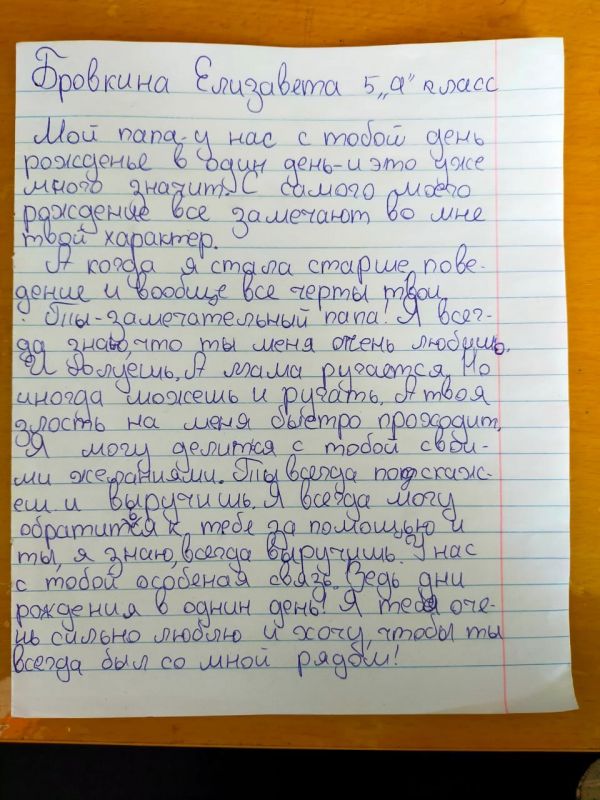 Бровкина Елизавета 5 „а" класс
Мой папа-у нас с тобой день
рожденье в один день-и это уже
много значит. С самого моего
рождение все замечают во мне
твой характер.
А когда я стала старше пове-
дение и вообще все черты твои
. Ты-замечательный папа! Я всег-
да знаю, что ты меня очень любишь.
И балуешь. А мама ругается. Но
иногда можешь и ругать. А твоя
злость на меня быстро проходит.
Я могу делится с тобой свои-
ми желаниями. Ты всегда подскаж-
еш и выручишь. Я всегда могу
обратится к тебе за помощью и
ты, я знаю, всегда выручишь. У нас
с тобой особеная связь. Ведь дни
рождения в однин день! Я тебя оче-
нь сильно люблю и хочу, чтобы ты
всегда был со мной рядом!